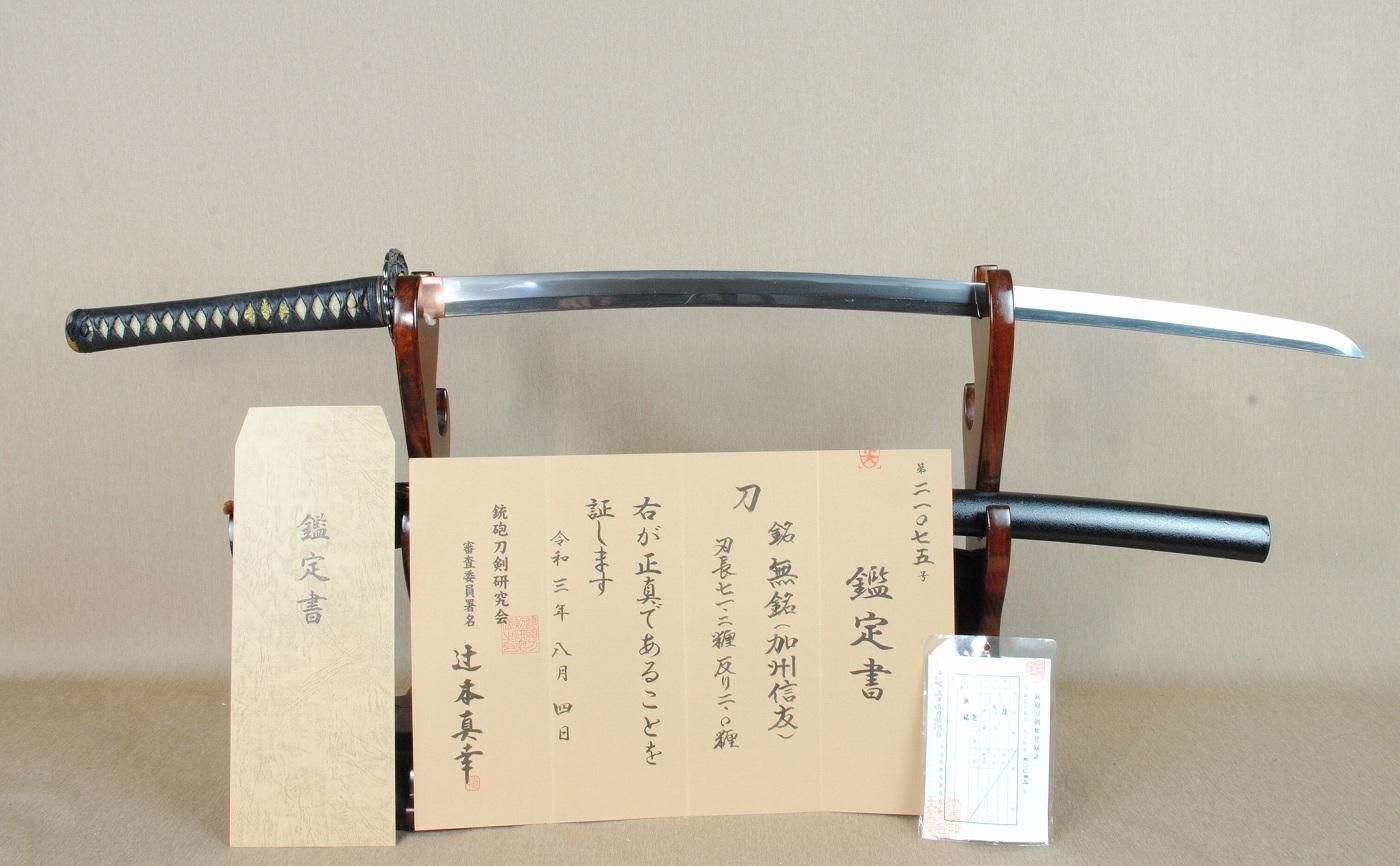 鑑定書
第二一〇七五号
鑑定書
銘 無銘(加州信友)
刀
刃長七一・二糎 反り二・〇糎
右が正真であることを
証します
令和三年 八月 四日
銃砲刀剣研究会
審査委員署名
辻本真幸
銃砲刀剣類登録証
刀
無銘